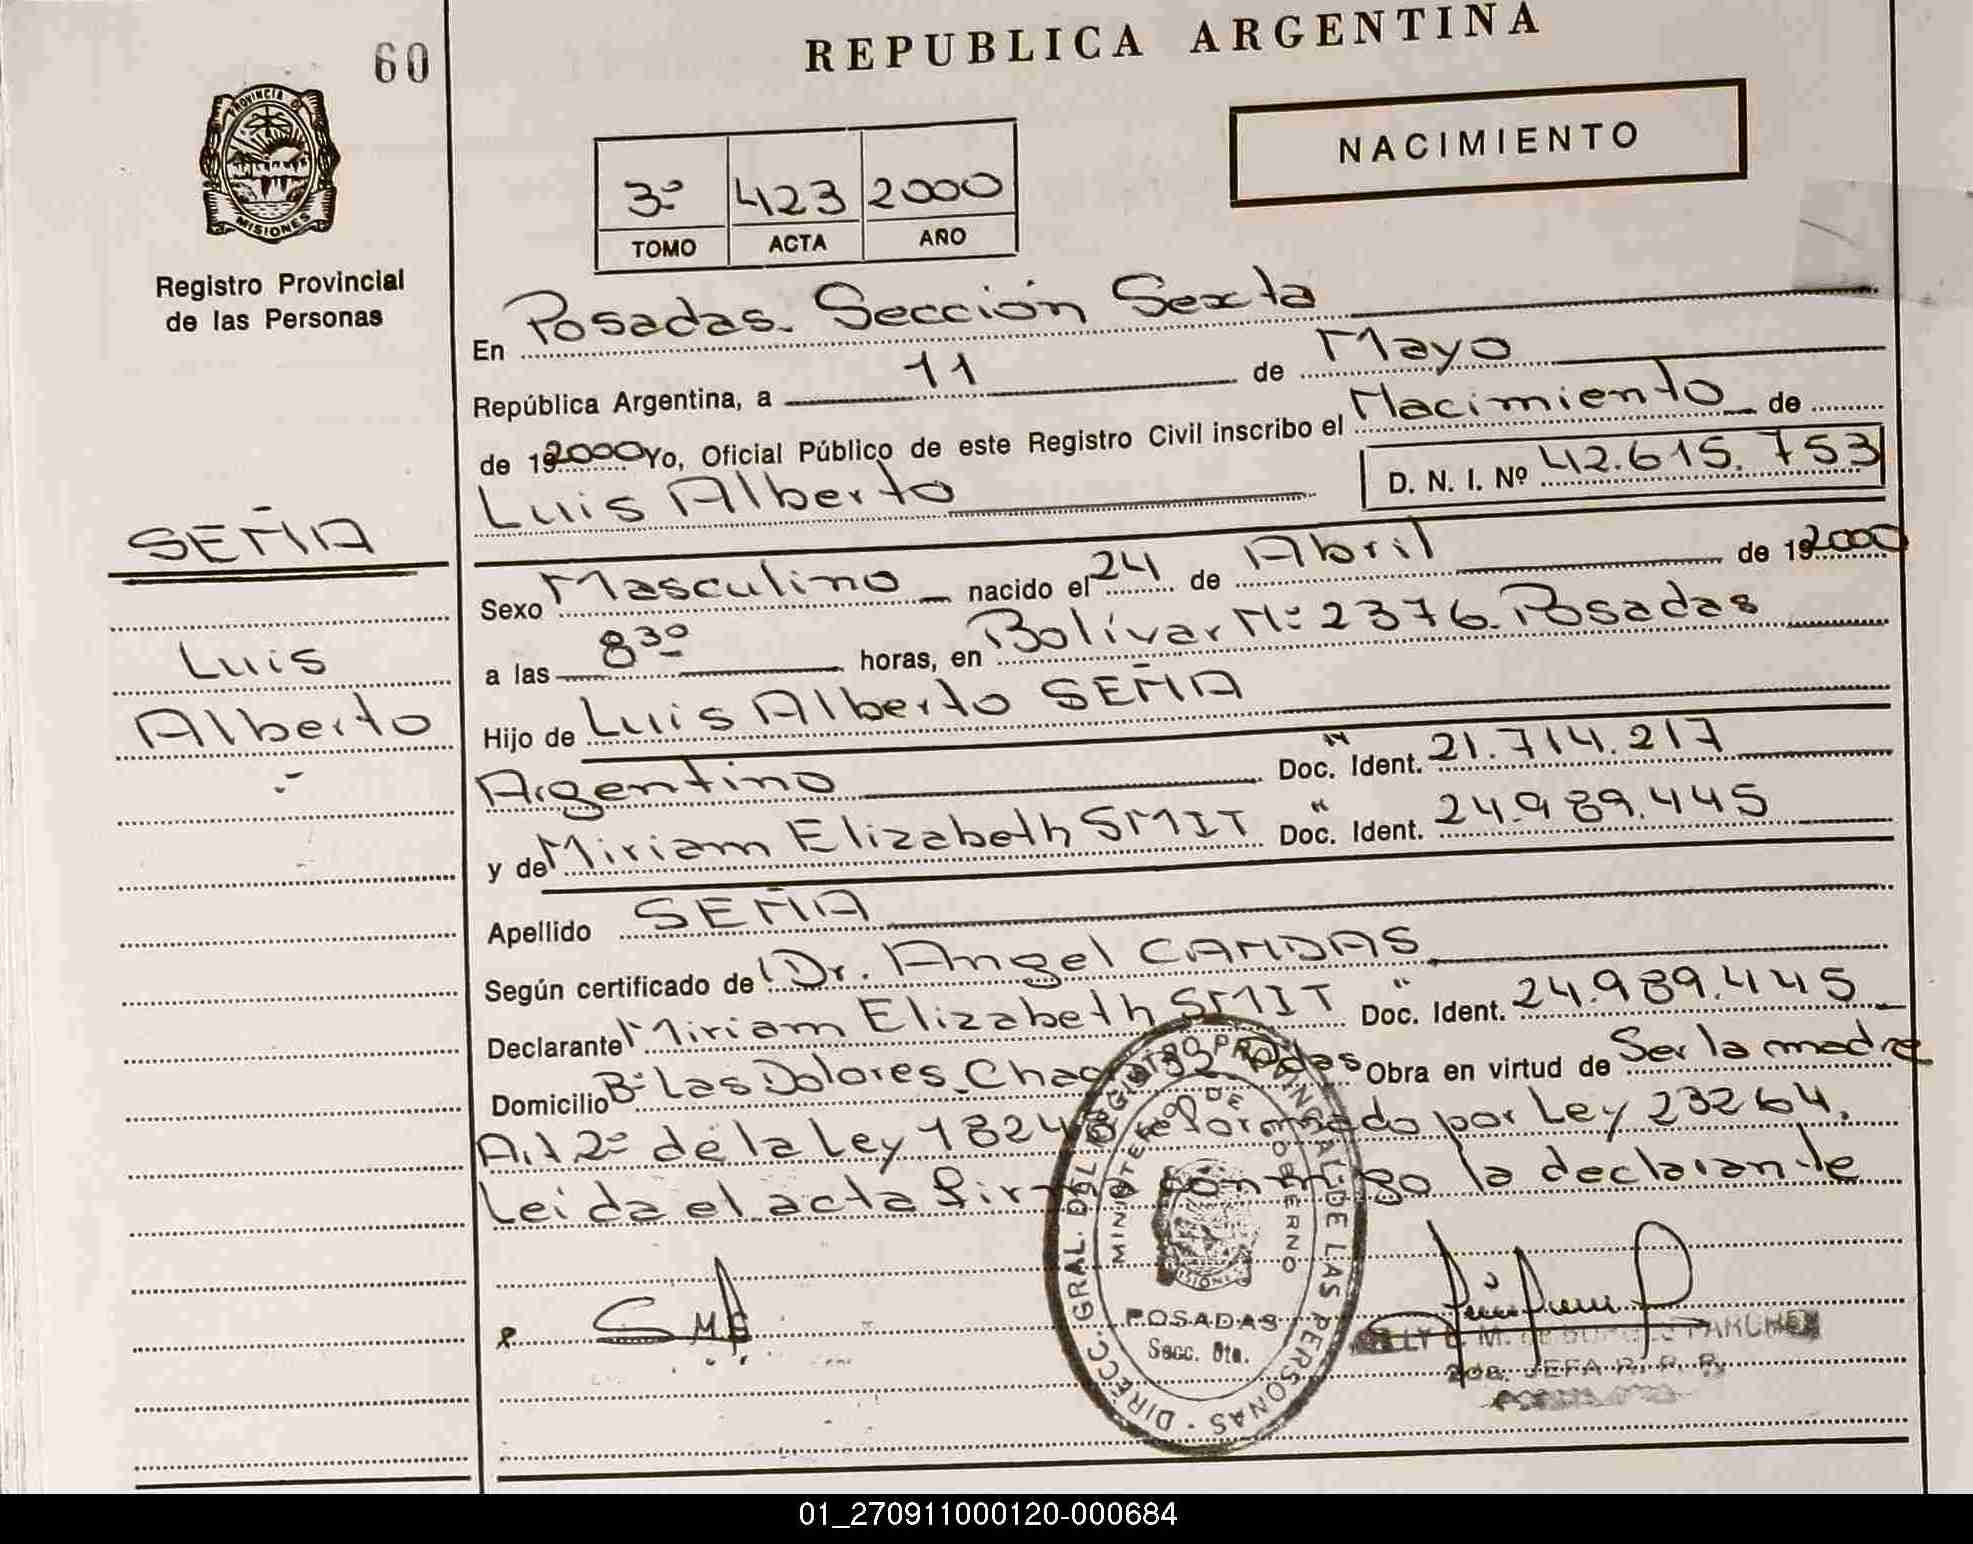 60
REPUBLICA ARGENTINA
PROVINCIA DE
MISIONES
NACIMIENTO
3º 423 2000
TOMO ACTA AÑO
Registro Provincial
de las Personas
En Posadas. Sección Sexta
República Argentina, a 11 de Mayo
de 192000 Yo, Oficial Público de este Registro Civil inscribo el Nacimiento de
Luis Alberto D. N. I. Nº 42.615.753
SEÑA
Sexo Masculino nacido el 24 de Abril de 192000
Luis
a las 8 30 horas, en Bolívar Nº 2376. Posadas
Alberto
Hijo de Luis Alberto SEÑA
Argentino Doc. Ident. 21.714.217
y de Miriam Elizabeth SMIT Doc. Ident. 24.989.445
Apellido SEÑA
Según certificado de Dr. Angel CANDAS
Declarante Miriam Elizabeth SMIT Doc. Ident. 24.989.445
Domicilio Bº Las Dolores. Obra en virtud de Ser la madre
Art 2º de la Ley 18248 reformado por Ley 23264.
Leida el acta firma conmigo la declarante
DIRECC. GRAL. DEL REGISTRO PROVINCIAL DE LAS PERSONAS
MINISTERIO DE GOBIERNO
MISIONES
POSADAS
Secc. 6ta.
2da. JEFA R. P. P.
01_270911000120-000684